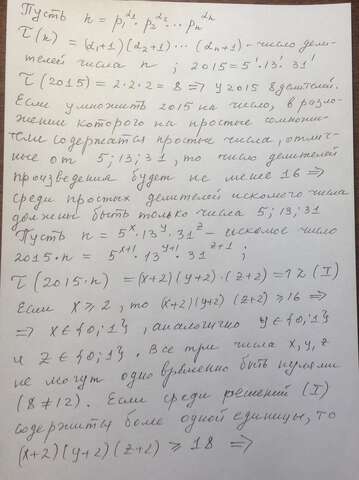 Пусть n = p₁^α₁ · p₂^α₂ ... pₙ^αₙ
τ(n) = (α₁+1)(α₂+1)···(αₙ+1) - число дели-
телей числа n ; 2015 = 5¹·13¹·31¹
τ(2015) = 2·2·2 = 8 => у 2015 8 делителей.
Если умножить 2015 на число, в разло-
жении которого на простые сомножи-
тели содержатся простые числа, отлич-
ные от 5; 13; 31, то число делителей
произведения будет не менее 16 =>
среди простых делителей искомого числа
должны быть только числа 5; 13; 31
Пусть n = 5^x · 13^y · 31^z - искомое число
2015·n = 5^(x+1) · 13^(y+1) · 31^(z+1) ;
τ(2015·n) = (x+2)(y+2)·(z+2) = 12 (I)
Если x ≥ 2, то (x+2)(y+2)(z+2) ≥ 16 =>
=> x ∈ {0;1} , аналогично y ∈ {0;1}
и z ∈ {0;1} . Все три числа x, y, z
не могут одновременно быть нулями
(8 ≠ 12). Если среди решений (I)
содержится более одной единицы, то
(x+2)(y+2)(z+2) ≥ 18 =>